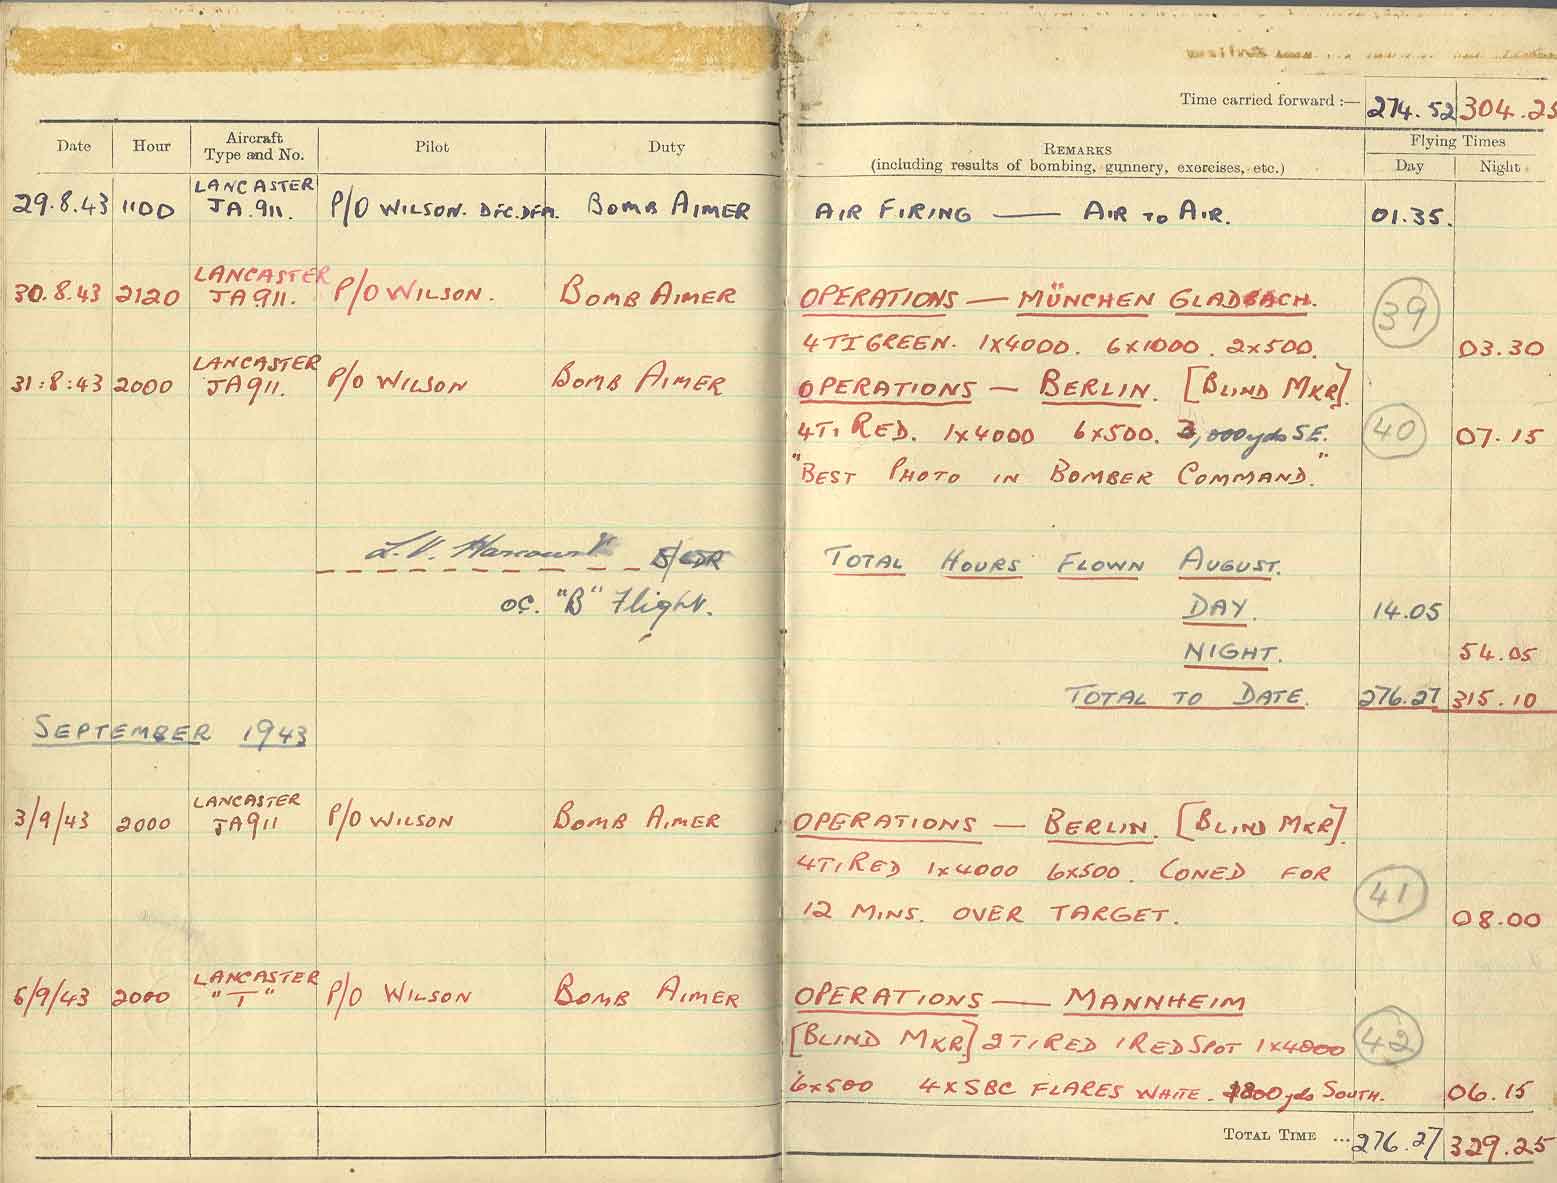 Time carried forward :— 274.52 304.25
Date Hour Aircraft Type and No. Pilot Duty REMARKS (including results of bombing, gunnery, exercises, etc.) Flying Times Day Night
29.8.43 1100 LANCASTER JA.911. P/O WILSON. DFC.DFM. BOMB AIMER AIR FIRING — AIR TO AIR. 01.35.
30.8.43 2120 LANCASTER JA911. P/O WILSON. BOMB AIMER OPERATIONS — MÜNCHEN GLADBACH. 39
4 TI GREEN. 1X4000. 6X1000. 2X500. 03.30
31:8:43 2000 LANCASTER JA911. P/O WILSON BOMB AIMER OPERATIONS — BERLIN. [BLIND MKR].
4TI RED. 1X4000 6X500. 3,000yds SE. 40 07.15
"BEST PHOTO IN BOMBER COMMAND."
L.V. Harcourt S/LDR TOTAL HOURS FLOWN AUGUST.
OC. "B" Flight. DAY. 14.05
NIGHT. 54.05
TOTAL TO DATE. 276.27 315.10
SEPTEMBER 1943
3/9/43 2000 LANCASTER JA911 P/O WILSON BOMB AIMER OPERATIONS — BERLIN. [BLIND MKR].
4TI RED 1X4000 6X500. CONED FOR 41
12 MINS. OVER TARGET. 08.00
6/9/43 2000 LANCASTER "T" P/O WILSON BOMB AIMER OPERATIONS — MANNHEIM
[BLIND MKR] 2TI RED 1 RED SPOT 1X4000 42
6X500 4XSBC FLARES WHITE. 1800yds SOUTH. 06.15
TOTAL TIME ... 276.27 329.25